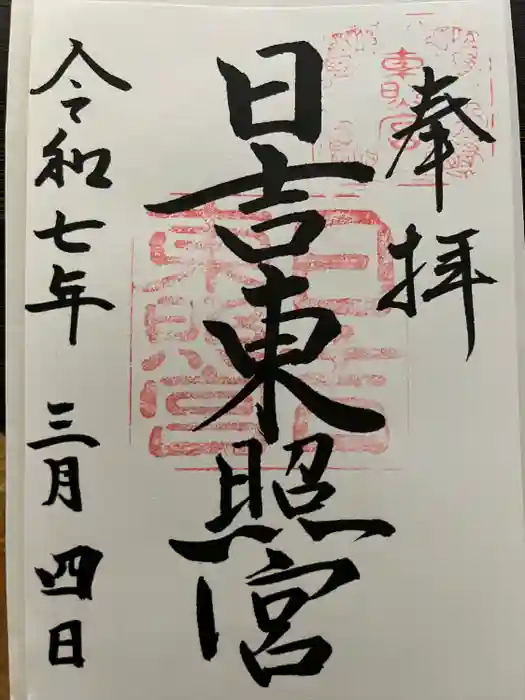 奉拝
東照宮
日吉東照宮
令和七年 三月 四日